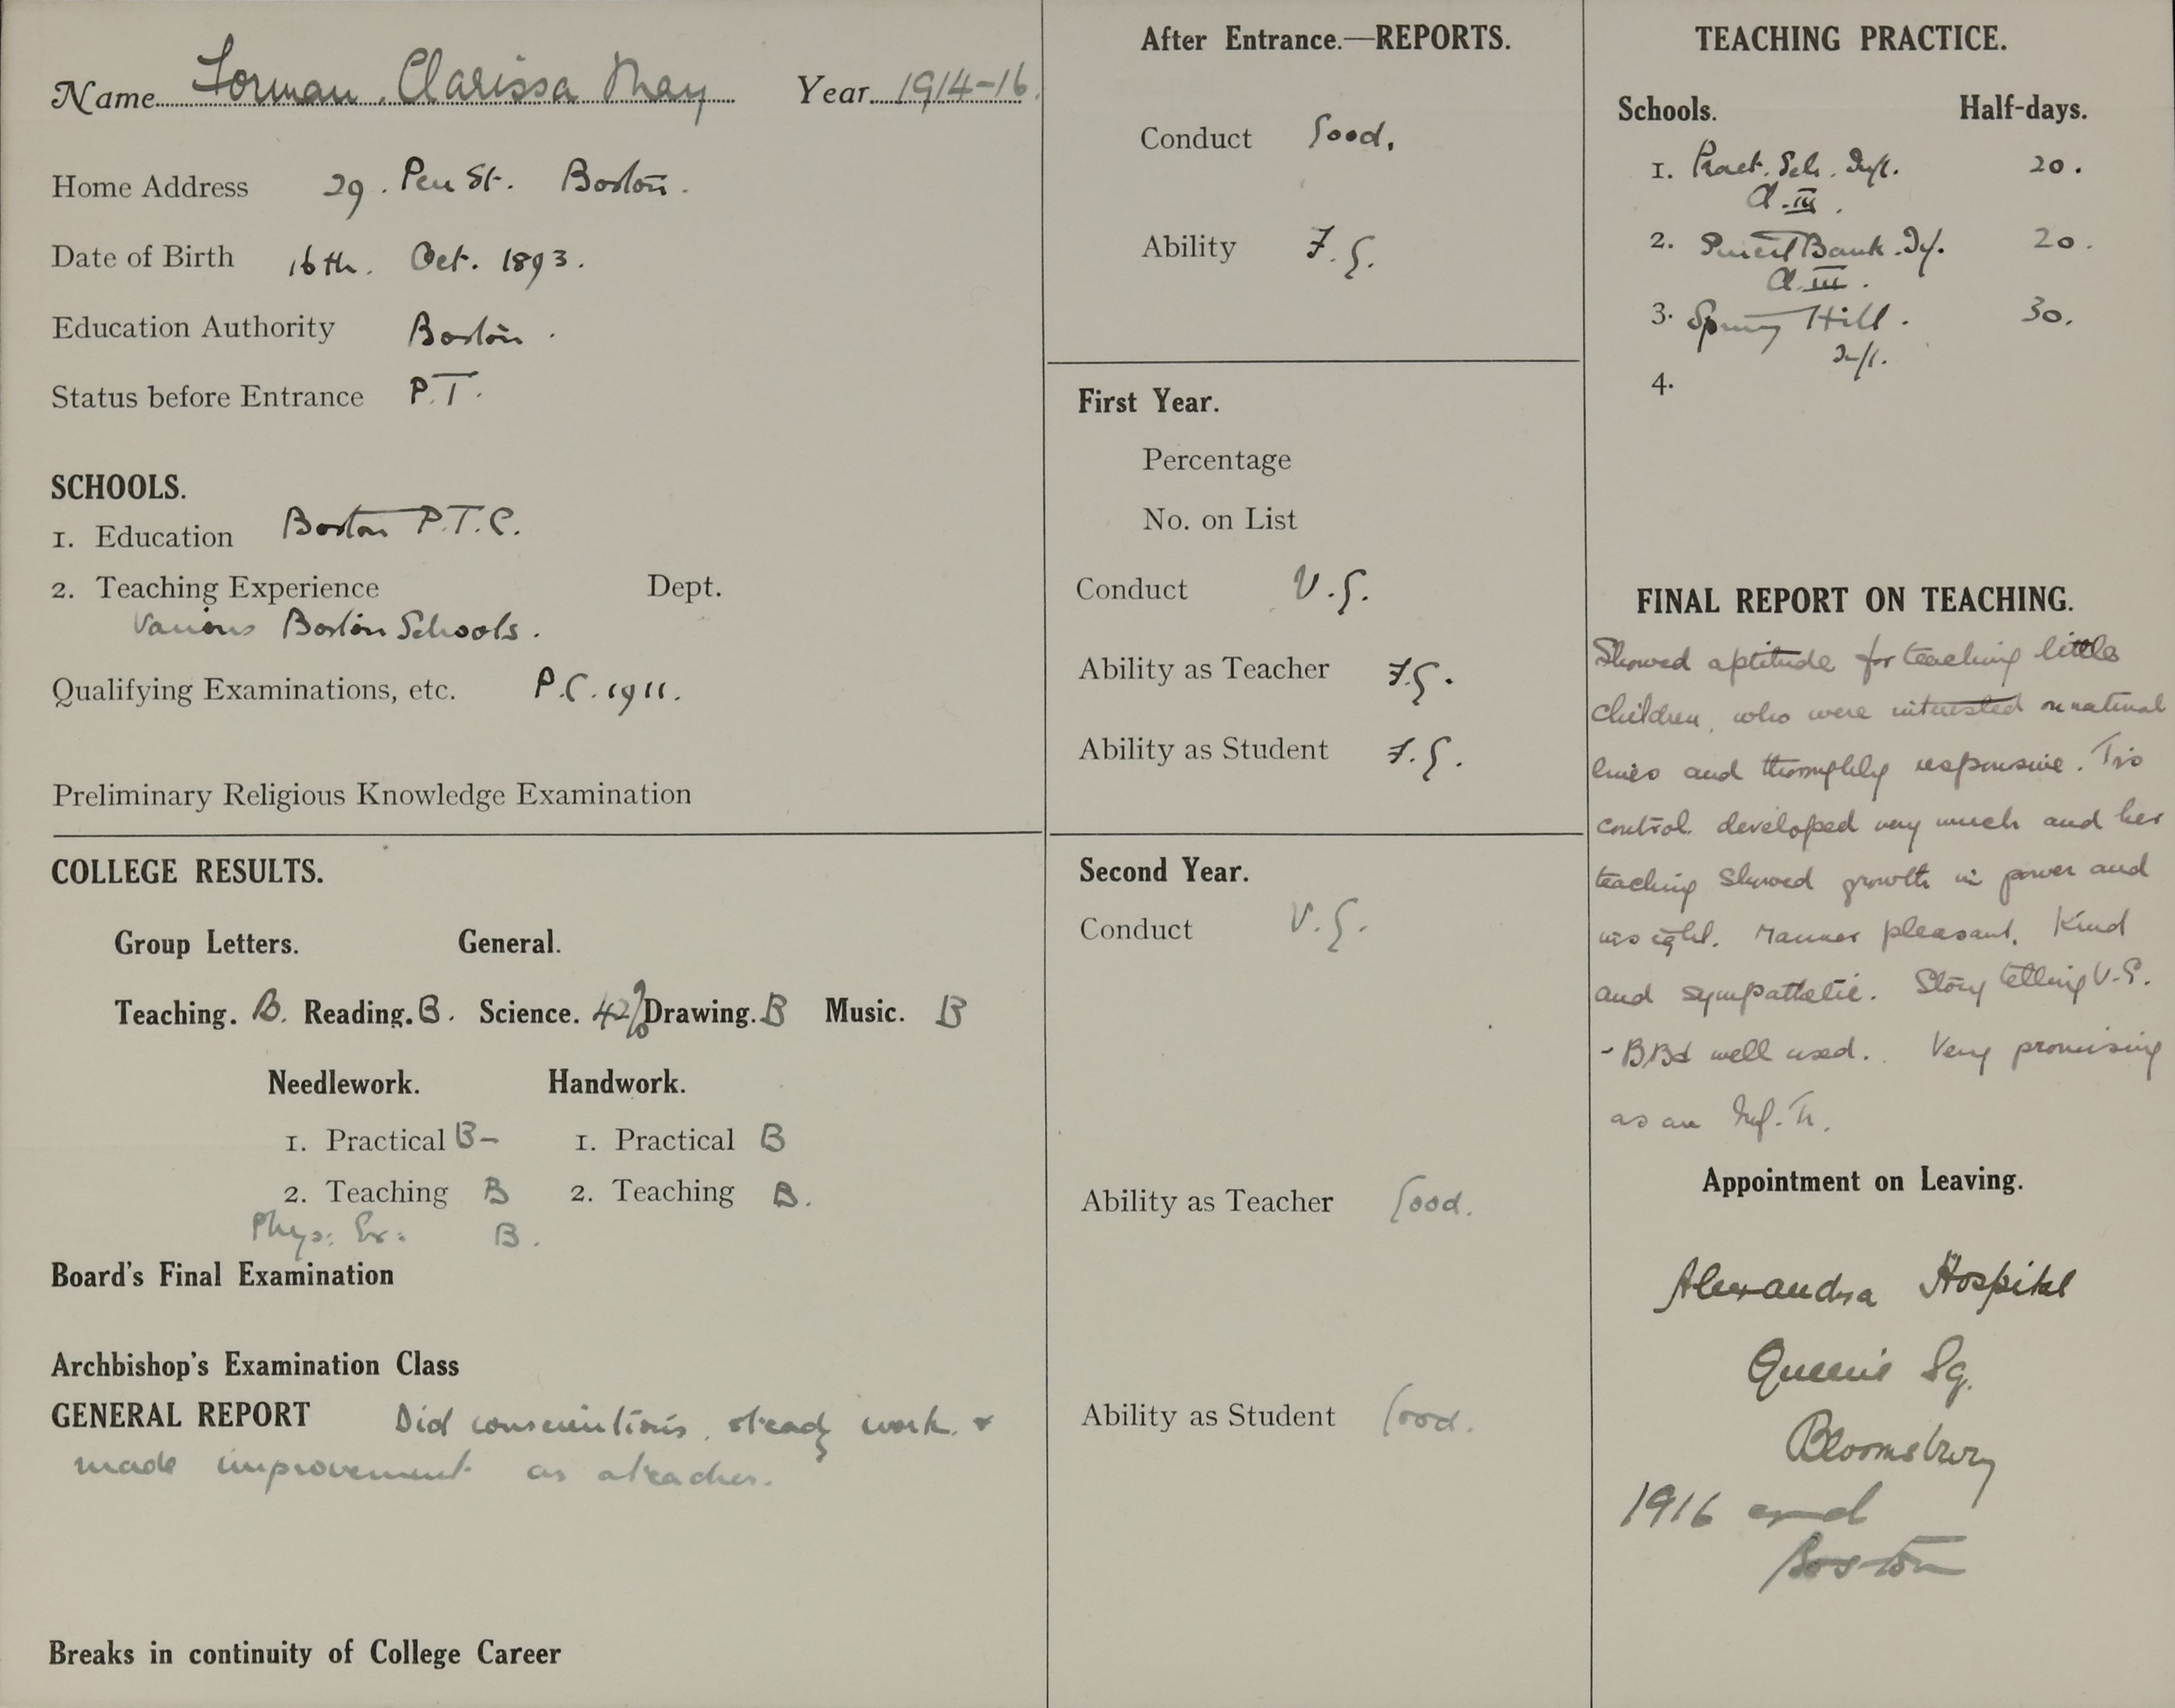 Name Forman. Clarissa May Year 1914-16.
Home Address 29. Pen St. Boston.
Date of Birth 16th. Oct. 1893.
Education Authority Boston.
Status before Entrance P.T.
SCHOOLS.
1. Education Boston P.T.C.
2. Teaching Experience Dept.
Various Boston Schools.
Qualifying Examinations, etc. P.C. 1911.
Preliminary Religious Knowledge Examination
COLLEGE RESULTS.
Group Letters. General.
Teaching. B. Reading. B. Science. 42% Drawing. B Music. B
Needlework. Handwork.
1. Practical B- 1. Practical B
2. Teaching B 2. Teaching B.
Phys: Ex: B.
Board's Final Examination
Archbishop's Examination Class
GENERAL REPORT Did conscientious, steady work &
made improvement as a teacher.
Breaks in continuity of College Career
After Entrance.—REPORTS.
Conduct Good.
Ability F.G.
First Year.
Percentage
No. on List
Conduct V.G.
Ability as Teacher F.G.
Ability as Student F.G.
Second Year.
Conduct V.G.
Ability as Teacher Good.
Ability as Student Good.
TEACHING PRACTICE.
Schools. Half-days.
1. Pract. Sch. Inft. 20.
Cl. III.
2. Bank. 20.
Cl. III.
3. Spring Hill. 30.
Inft.
4.
FINAL REPORT ON TEACHING.
Showed aptitude for teaching little
children, who were interested on natural
lines and thoroughly responsive.
control developed very much and her
teaching showed growth in power and
insight. Manner pleasant. Kind
and sympathetic. Story telling V.G.
- BBd well used. Very promising
as an Inf. Tr.
Appointment on Leaving.
Alexandra Hospital
Queen's Sq.
Bloomsbury
1916 and
Boston